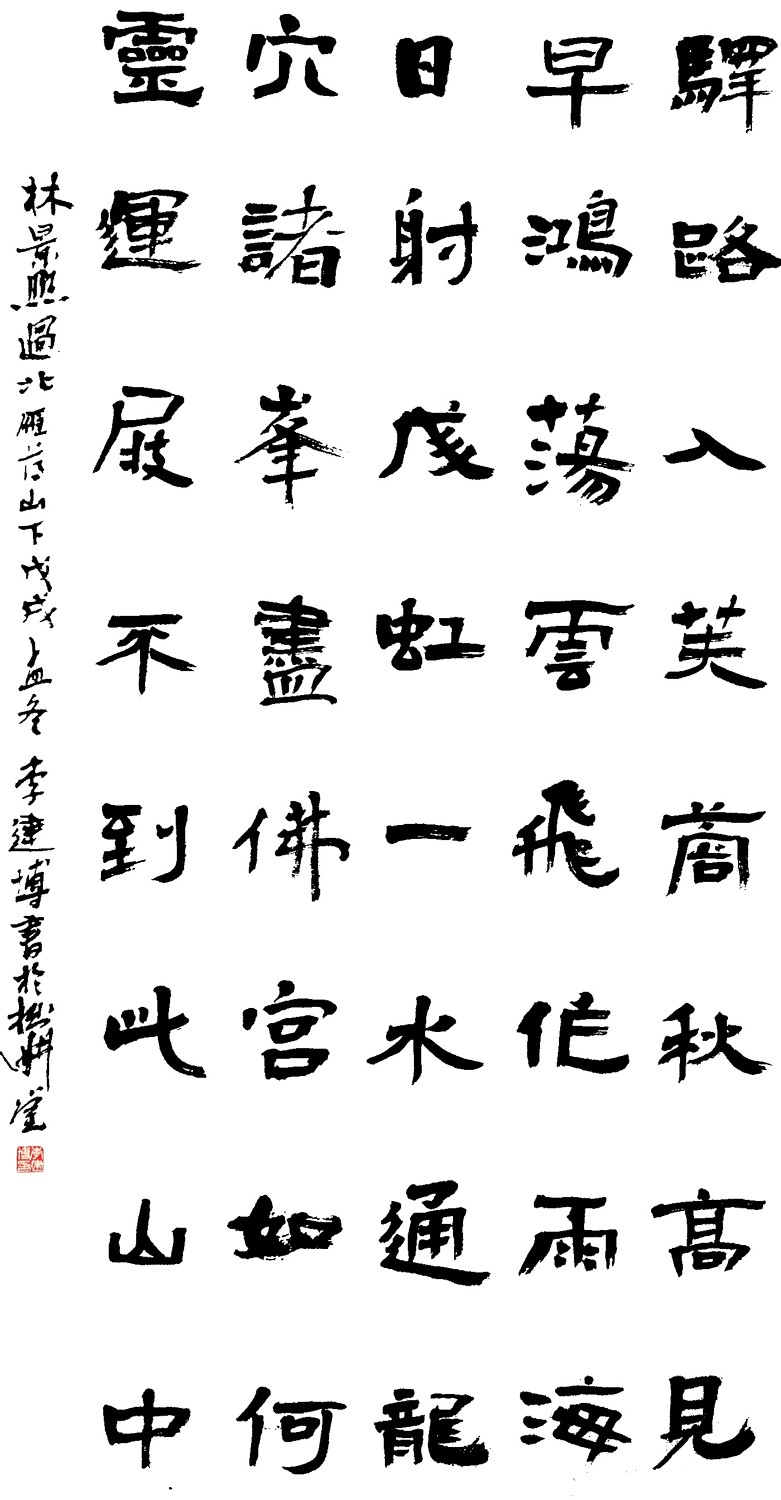 驛路入芙蓉秋高見
早鴻蕩雲飛作雨海
日射成虹一水通龍
穴諸峯盡佛宮如何
靈運屐不到此山中
林景熙過北雁蕩山下戊戌孟冬李建博書於耕堂